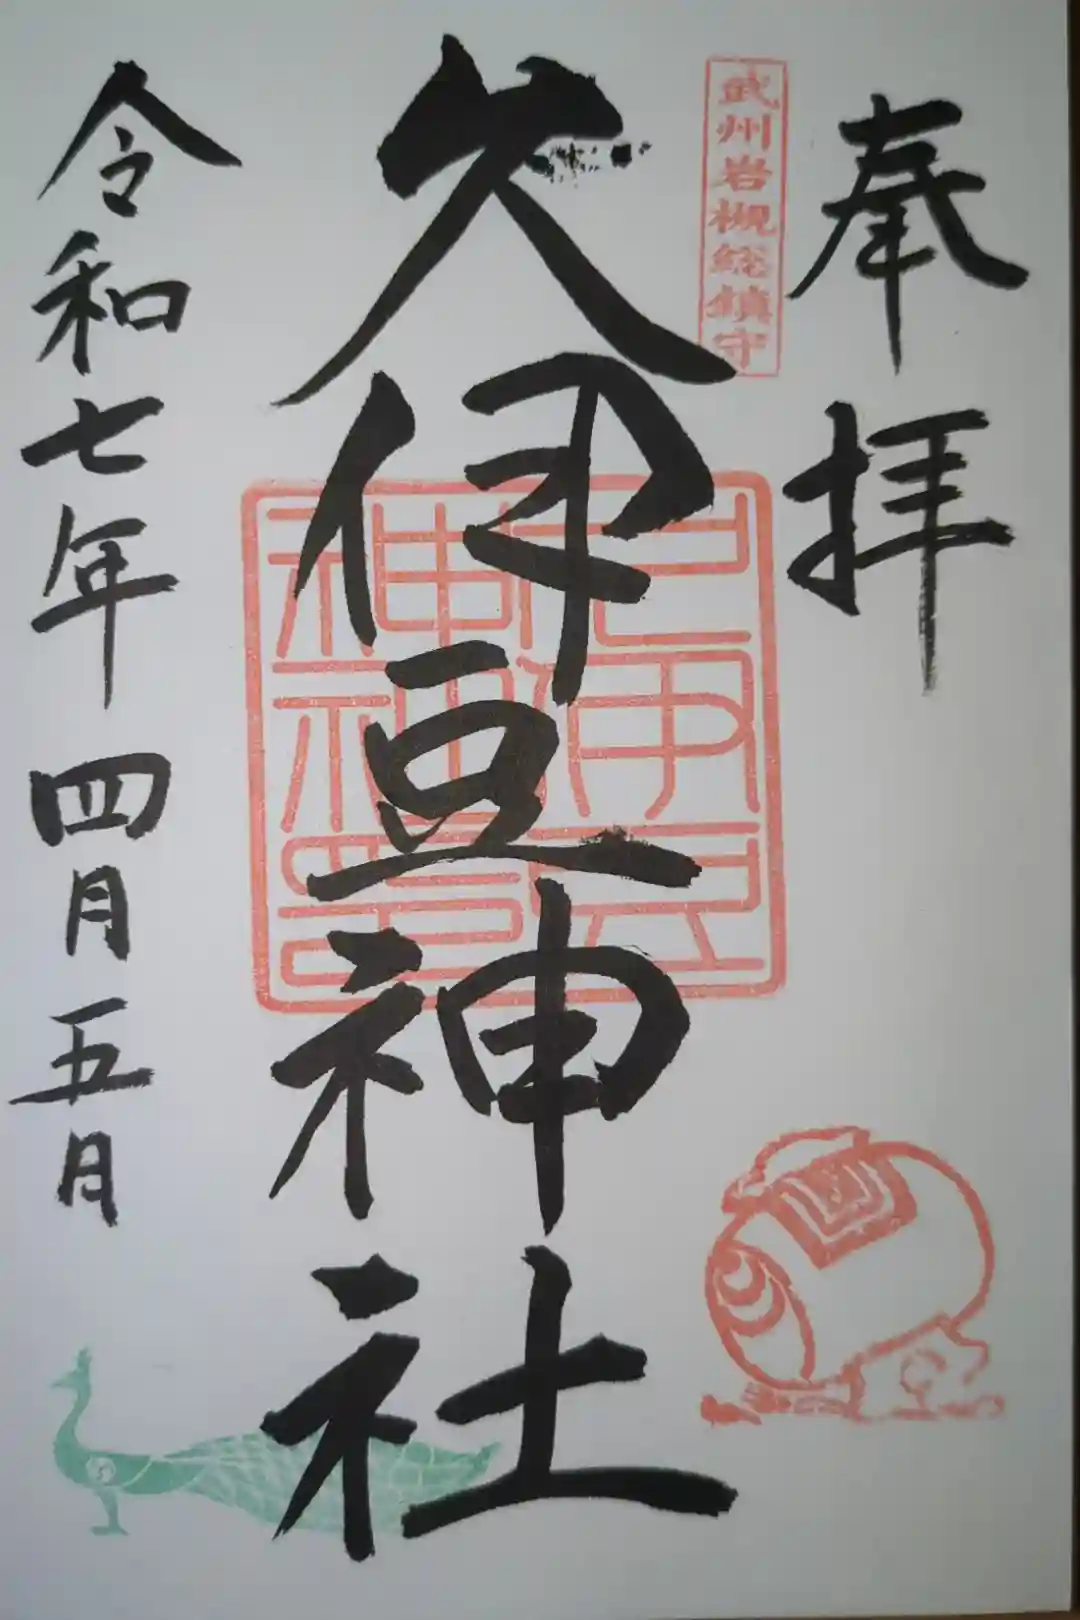 奉拝
武州岩槻総鎮守
久伊豆神社
久伊豆
神社印
令和七年 四月五日